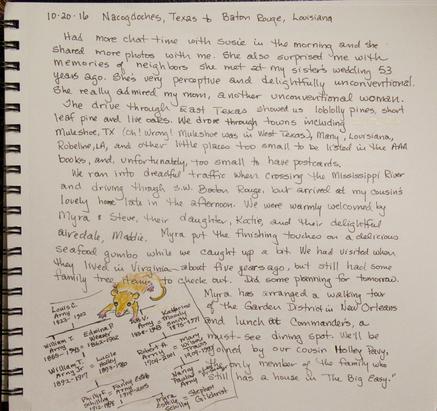 10-20-16 Nacogdoches, Texas to Baton Rouge, Louisiana
Had more chat time with Susie in the morning and she
shared more photos with me. She also surprised me with
memories of neighbors she met at my sister's wedding 53
years ago. She's very perceptive and delightfully unconventional.
She really admired my mom, another unconventional woman.
The drive through East Texas showed us loblolly pines, short
leaf pine and live oaks. We drove through towns including
Muleshoe, TX (oh! Wrong! Muleshoe was in West Texas), Many, Louisiana,
Robeline, LA, and other little places too small to be listed in the AAA
books, and, unfortunately, too small to have postcards.
We ran into dreadful traffic when crossing the Mississippi River
and driving through S.W. Baton Rouge, but arrived at my cousin's
lovely home late in the afternoon. We were warmly welcomed by
Myra & Steve, their daughter, Katie, and their delightful
airedale, Maddie. Myra put the finishing touches on a delicious
seafood gumbo while we caught up a bit. We had visited when
they lived in Virginia about five years ago, but still had some
family tree items to check out. Did some planning for tomorrow.
Myra has arranged a walking tour
of the Garden District in New Orleans
and lunch at Commander's, a
must-see dining spot. We'll be
joined by our cousin Holley Peavy,
only member of the family who
still has a house in "The Big Easy."
Louis C.
Army
William I.
Army
Edmina P.
William I.
Army Jr.
1892-1977
Lucie
Robert A.
Army
Katharine
Mary
Nancy
Philip F.
Schilling
Myra
Stephen
Gilchrist